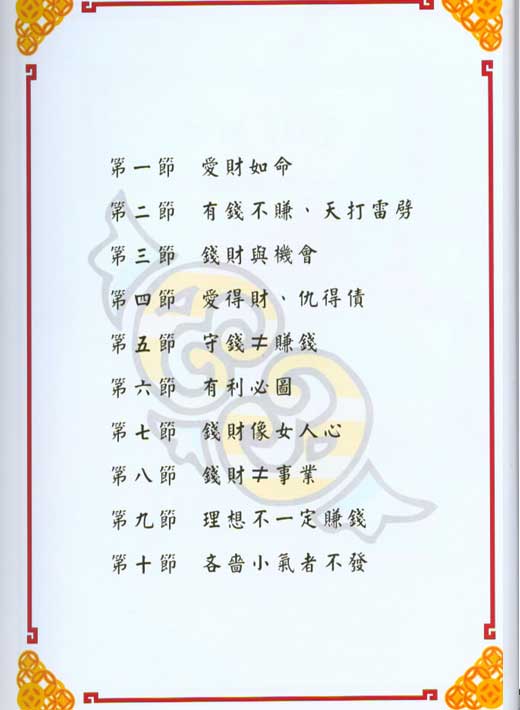 第一節 愛財如命
第二節 有錢不賺、天打雷劈
第三節 錢財與機會
第四節 愛得財、仇得債
第五節 守錢≠賺錢
第六節 有利必圖
第七節 錢財像女人心
第八節 錢財≠事業
第九節 理想不一定賺錢
第十節 吝嗇小氣者不發